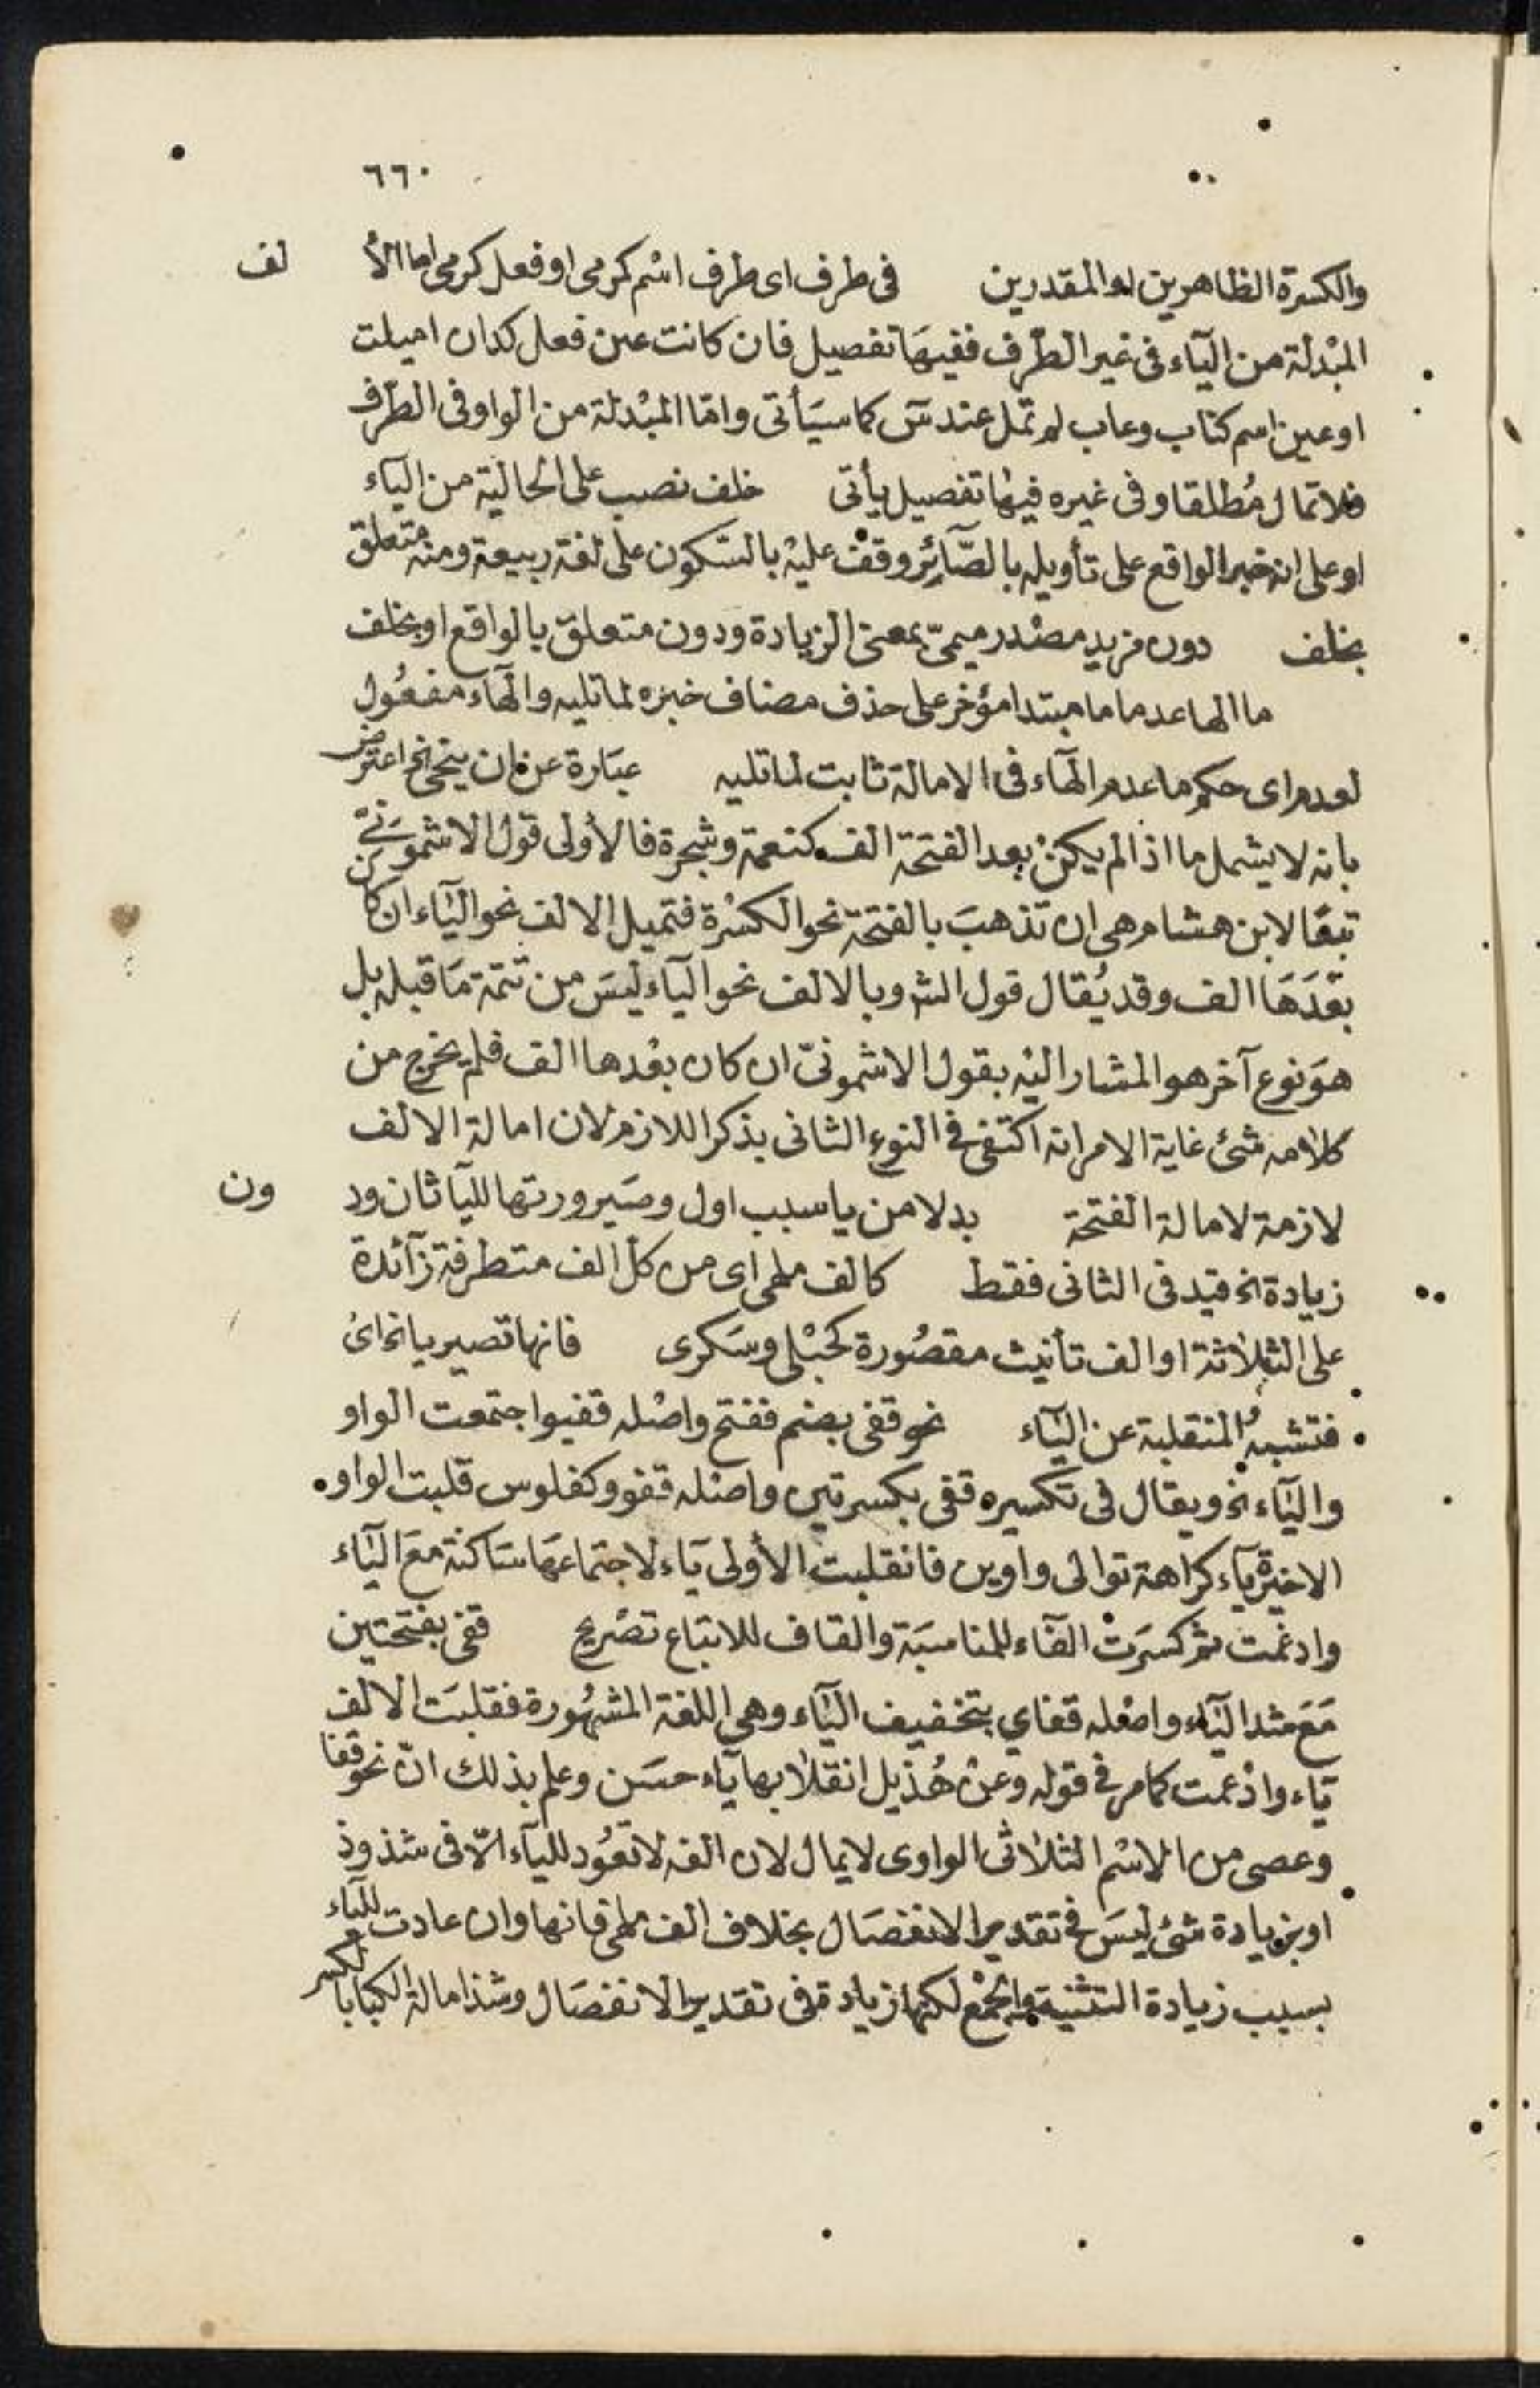 ٦٦٠
والكسرة الظاهرين او المقدرين في طرف اى طرف اسْم كرمى او فعل كرمى اما الأ لف
المبْدلة من اليَاء فى غير الطّرف ففيهَا تفصيل فان كانت عين فعل كدان اميلت
او عين اسم كتاب وعاب لم تمل عند سَ كما سيَأتى وامّا المبْدلة من الواو فى الطرف
فلا تمال مُطلقا وفى غيره فيها تفصيل يأتى خلف نصب على الحالية من الياء
او على انه خبر الواقع على تأويله بالصَّائِر وقف عليْه بالسّكون على لغة ربيعة ومنه متعلق
بخلف دون مزيد مصْدر ميمىّ بمعنى الزيادة ودون متعلق بالواقع او بخلف
ما الها عد ما ما مبتدا مؤخر على حذف مضاف خبره لما تليه والهَاء مفعُول
لعدم اى حكم ما عدم الهاء فى الامالة ثابت لما تليه عبَارة عن ان ينحى الخ اعترض
بانه لا يشمل ما اذا لم يكنْ بعد الفتحة الف كنعمة وشجرة فالأولى قول الاشمونىّ
تبعًا لابن هشام هى ان تذهبَ بالفتحة نحو الكسْرة فتميل الالف نحو اليَاء ان كان
بعْدَهَا الف وقد يُقال قول الشـ وبالالف نحو اليَاء ليسَ من تتمة مَا قبله بل
هوَ نوع آخر هو المشار اليْه بقول الاشمونىّ ان كان بعْدها الف فلم يخرج من
كلامه شئ غاية الامر انه اكتفى فى النوع الثانى بذكر اللازم لان امالة الالف
لازمة لامالة الفتحة بدلا من يا سبب اول وصَيرورتها لليَا ثان ود ون
زيادة الخ قيد فى الثانى فقط كالف ملهى اى من كل الف متطرفة زآئدة
على الثلاثة او الف تأنيث مقصُورة كحبْلى وسَكرى فانها تصير يا الخ اىْ
فتشبهُ المنقلبة عن اليَاء نحو قفى بضم ففتح واصْله قفيو اجتمعت الواو
واليَاء الخ ويقال فى تكسيره قفى بكسرتين واصْله قفوو كفلوس قلبت الواو
الاخيرة يآء كراهة توالى واوين فانقلبت الأولى يَاء لاجتماعهَا سَاكنة معَ اليَاء
وادغمت ثم كسَرَتْ الفَاء للمناسبَة والقاف للاتباع تصْريح قفى بفتحتين
مَعَ شد اليَاء واصْله قفاي بتخفيف اليَاء وهى اللغة المشهُورة فقلبَت الالف
يَاء وادْغمت كما مر فى قوله وعنْ هُذيل انقلابها يَاء حسَن وعلم بذلك انّ نحو قفا
وعصى من الاسْم الثلاثى الواوى لا يمال لان الفه لا تعُود للياء الّا فى شذوذ
او بزيادة شئ ليسَ فى تقدير الانفصَال بخلاف الف ملهى فانها وان عادت للياء
بسبب زيادة التثنية والجمْع لكنها زيادة فى تقدير الانفصَال وشذ امالة الكبا بالكسر